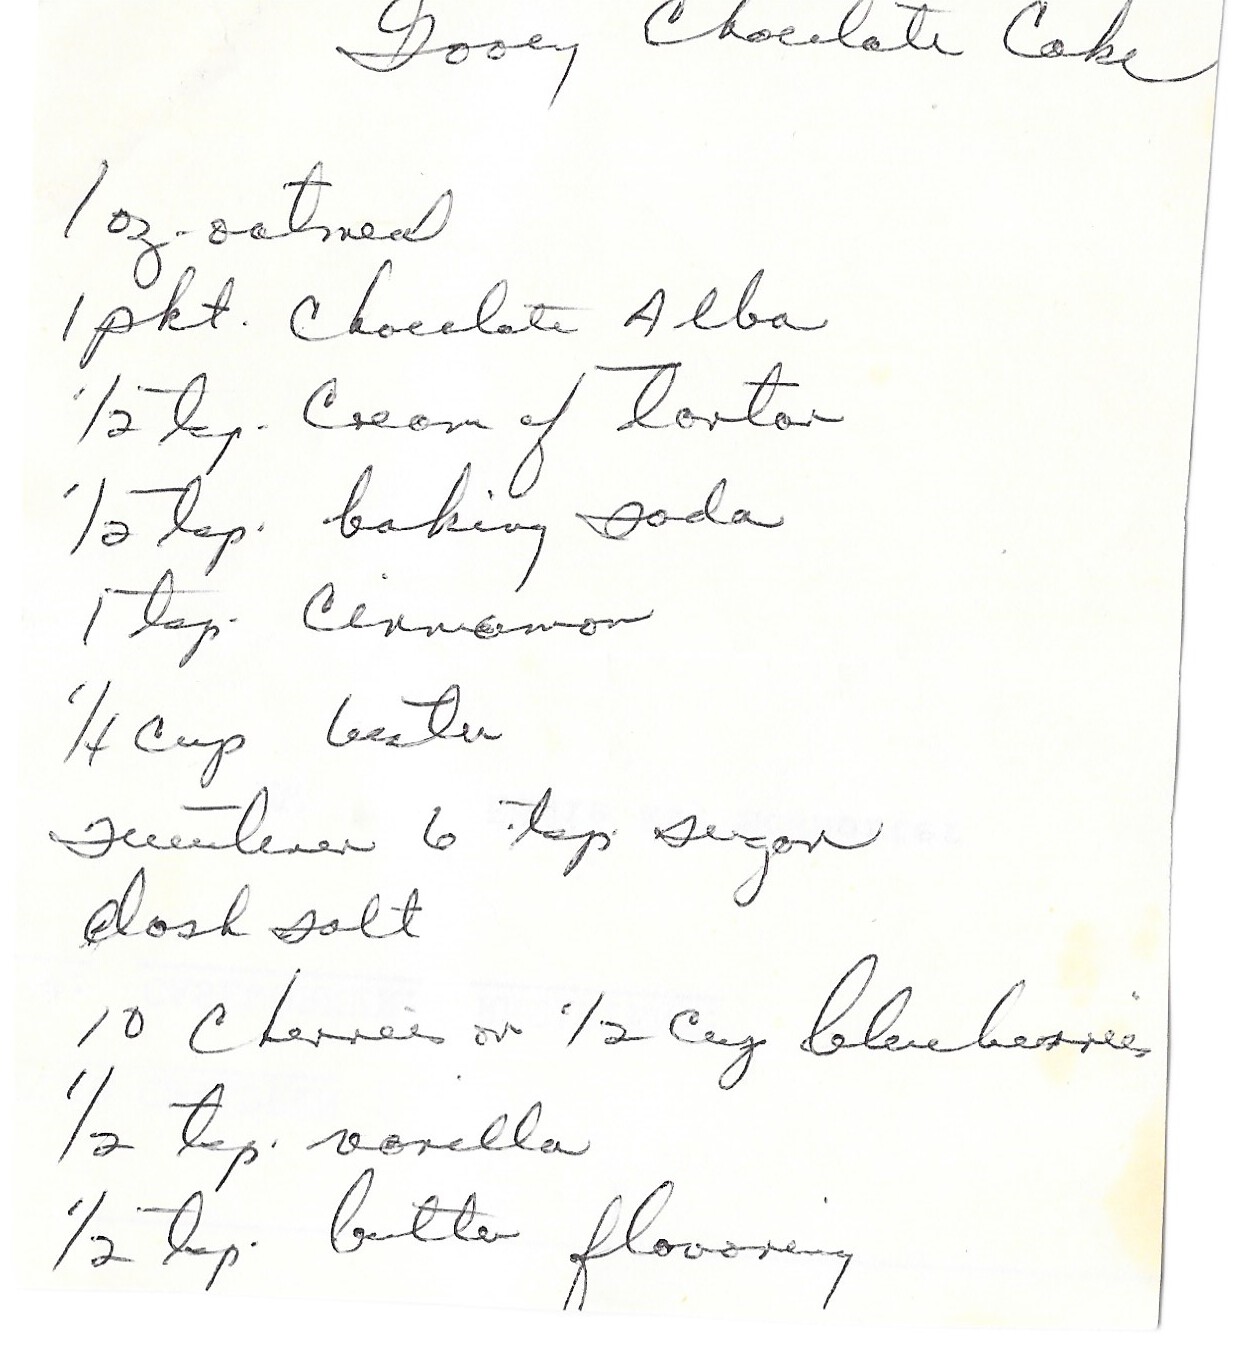 Gooey Chocolate Cake
1 oz. oatmeal
1 pkt. Chocolate Alba
1/2 tsp. Cream of Tartar
1/2 tsp. baking soda
1 tsp. Cinnamon
1/4 cup water
Sweetener 6 tsp. sugar
dash salt
10 Cherries or 1/2 cup blueberries
1/2 tsp. vanilla
1/2 tsp. butter flavoring